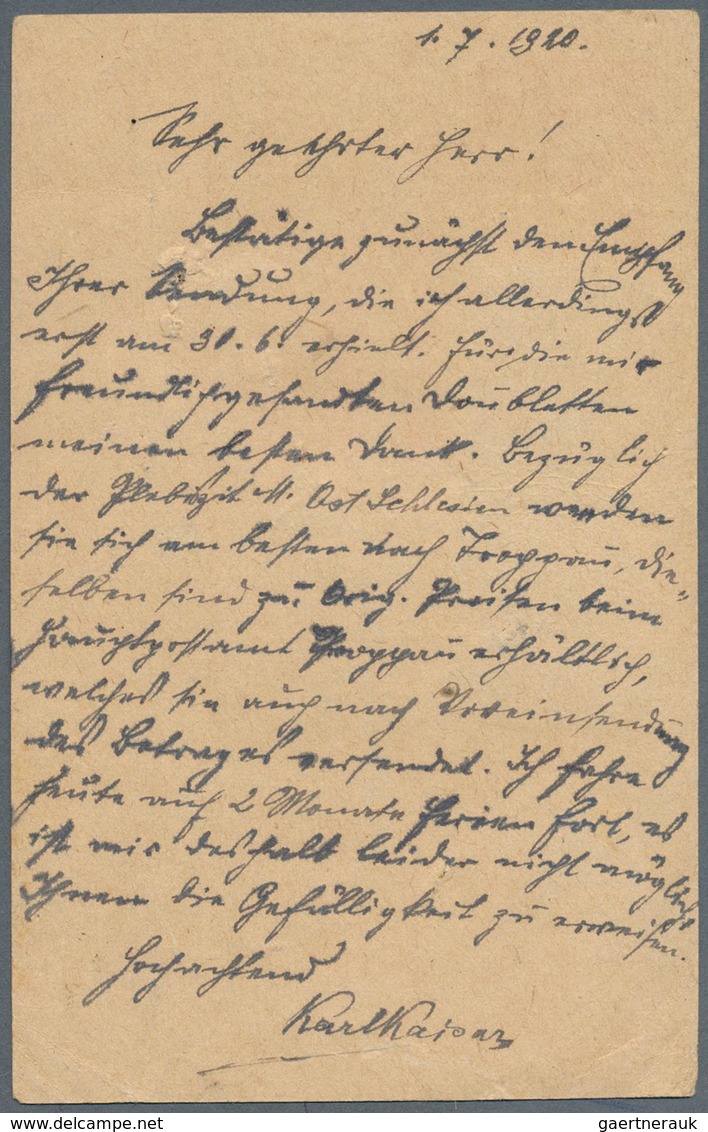 1. 7. 1920.
Sehr geehrter Herr!
Bestätige zunächst den Empfang
Ihrer Sendung, die ich allerdings
erst am 30. 6. erhielt. Für die mir
freundlichst gesandten Doubletten
meinen besten Dank. Bezüglich
der Plebizit M. Ost Schlesien wenden
sie sich am besten nach Troppau, die-
selben sind zu Orig. Preisen beim
Hauptpostamt Troppau erhältlich,
welches sie auch nach Voreinsendung
des Betrages versendet. Ich fahre
heute auf 2 Monate Ferien fort, es
ist mir deshalb leider nicht möglich
Ihnen die Gefälligkeit zu erweisen.
Hochachtend
Karl Kaiser
www.delcampe.net
gaertnerauk